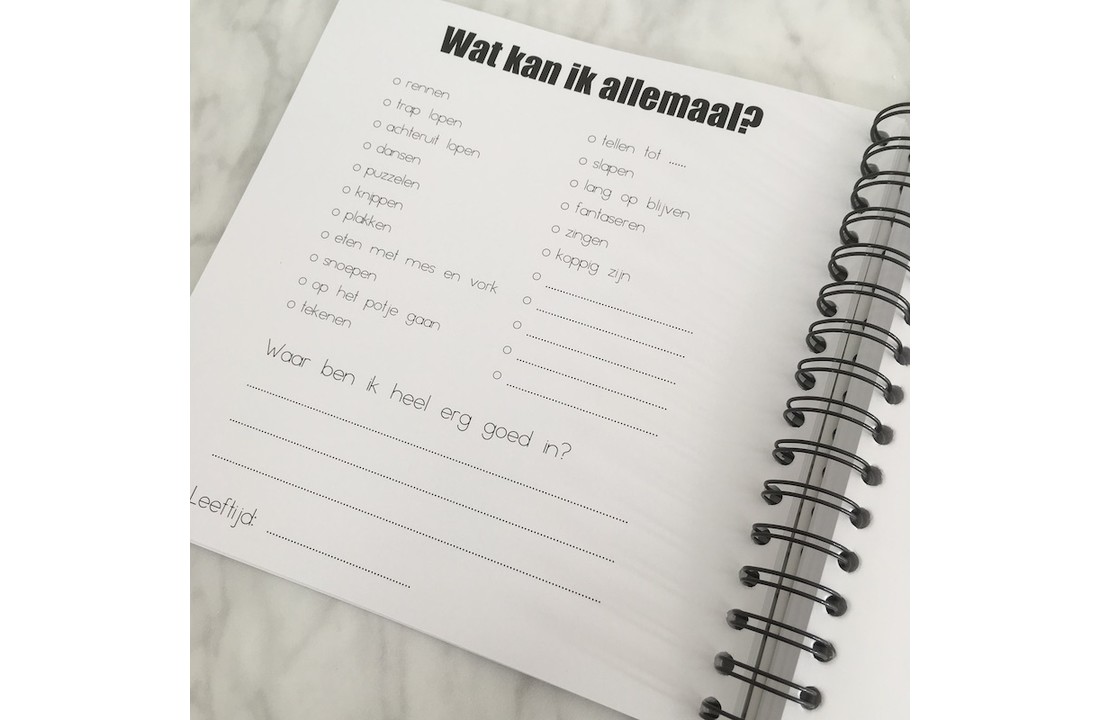 Wat kan ik allemaal?
rennen
trap lopen
achteruit lopen
dansen
puzzelen
knippen
plakken
eten met mes en vork
snoepen
op het potje gaan
tekenen
tellen tot ......
slapen
lang op blijven
fantaseren
zingen
koppig zijn
Waar ben ik heel erg goed in?
Leeftijd: